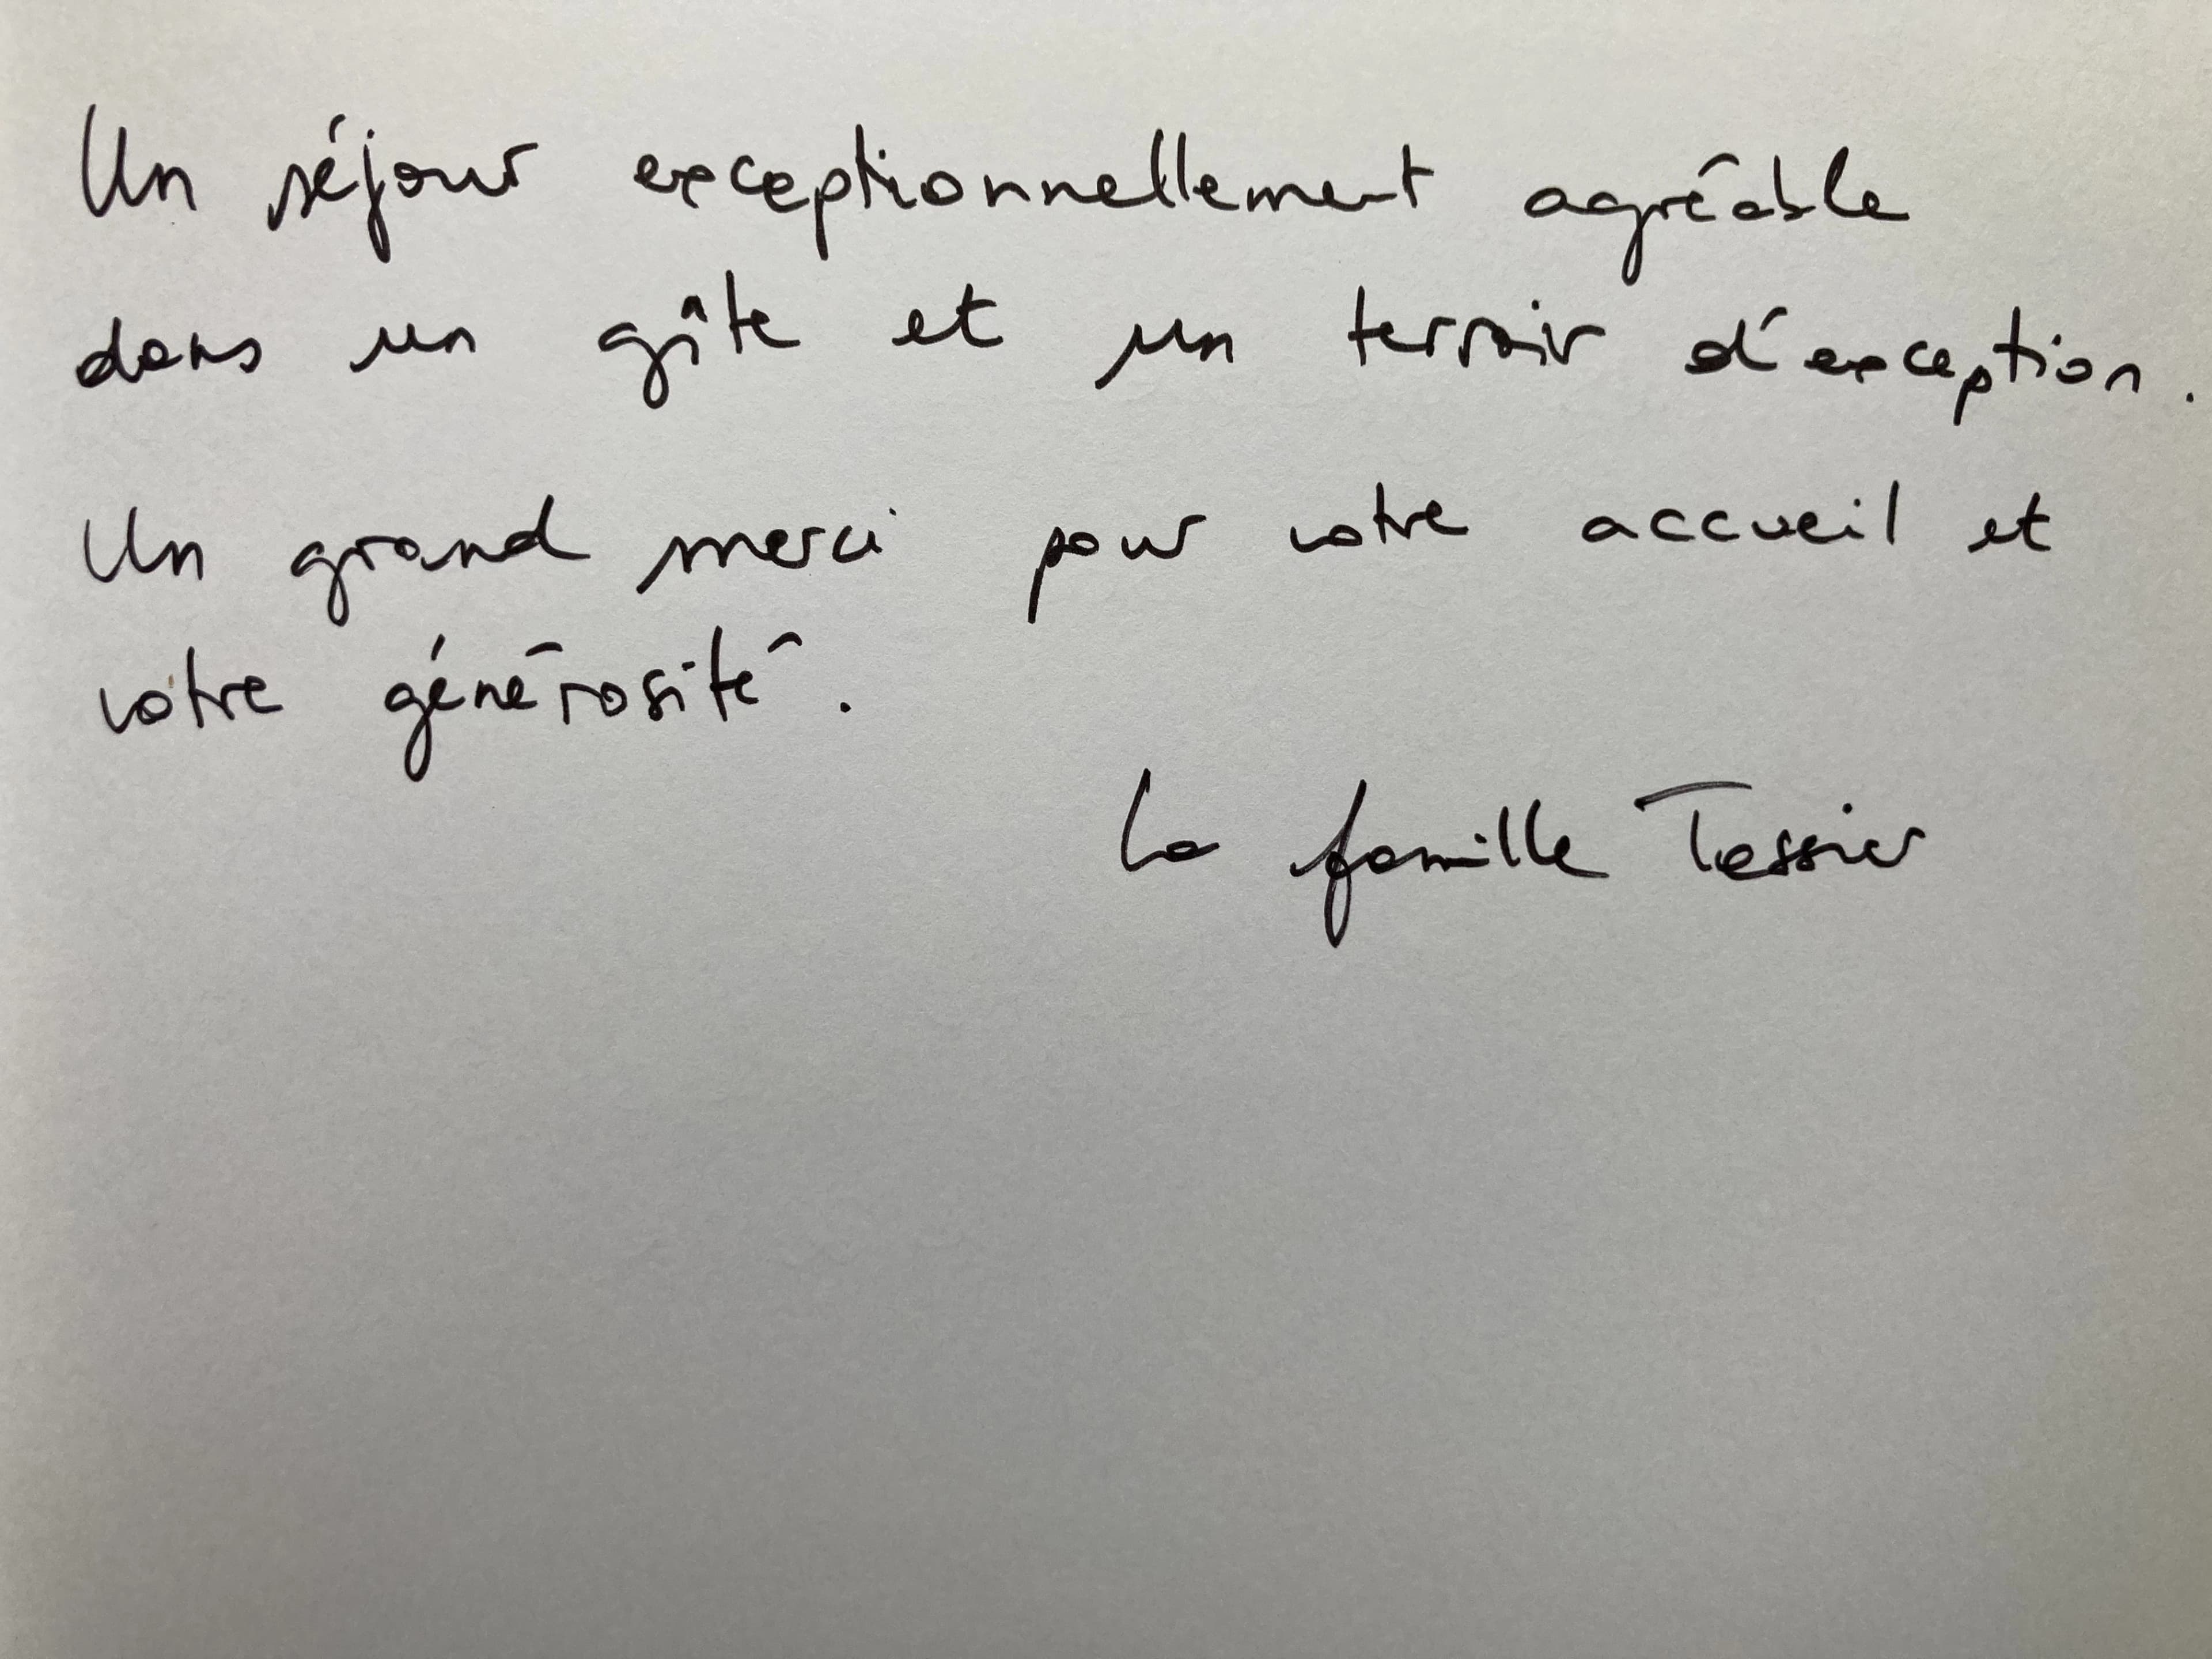 Un séjour exceptionnellement agréable
dans un gîte et un terroir d'exception.
Un grand merci pour votre accueil et
votre générosité.
La famille Tessier